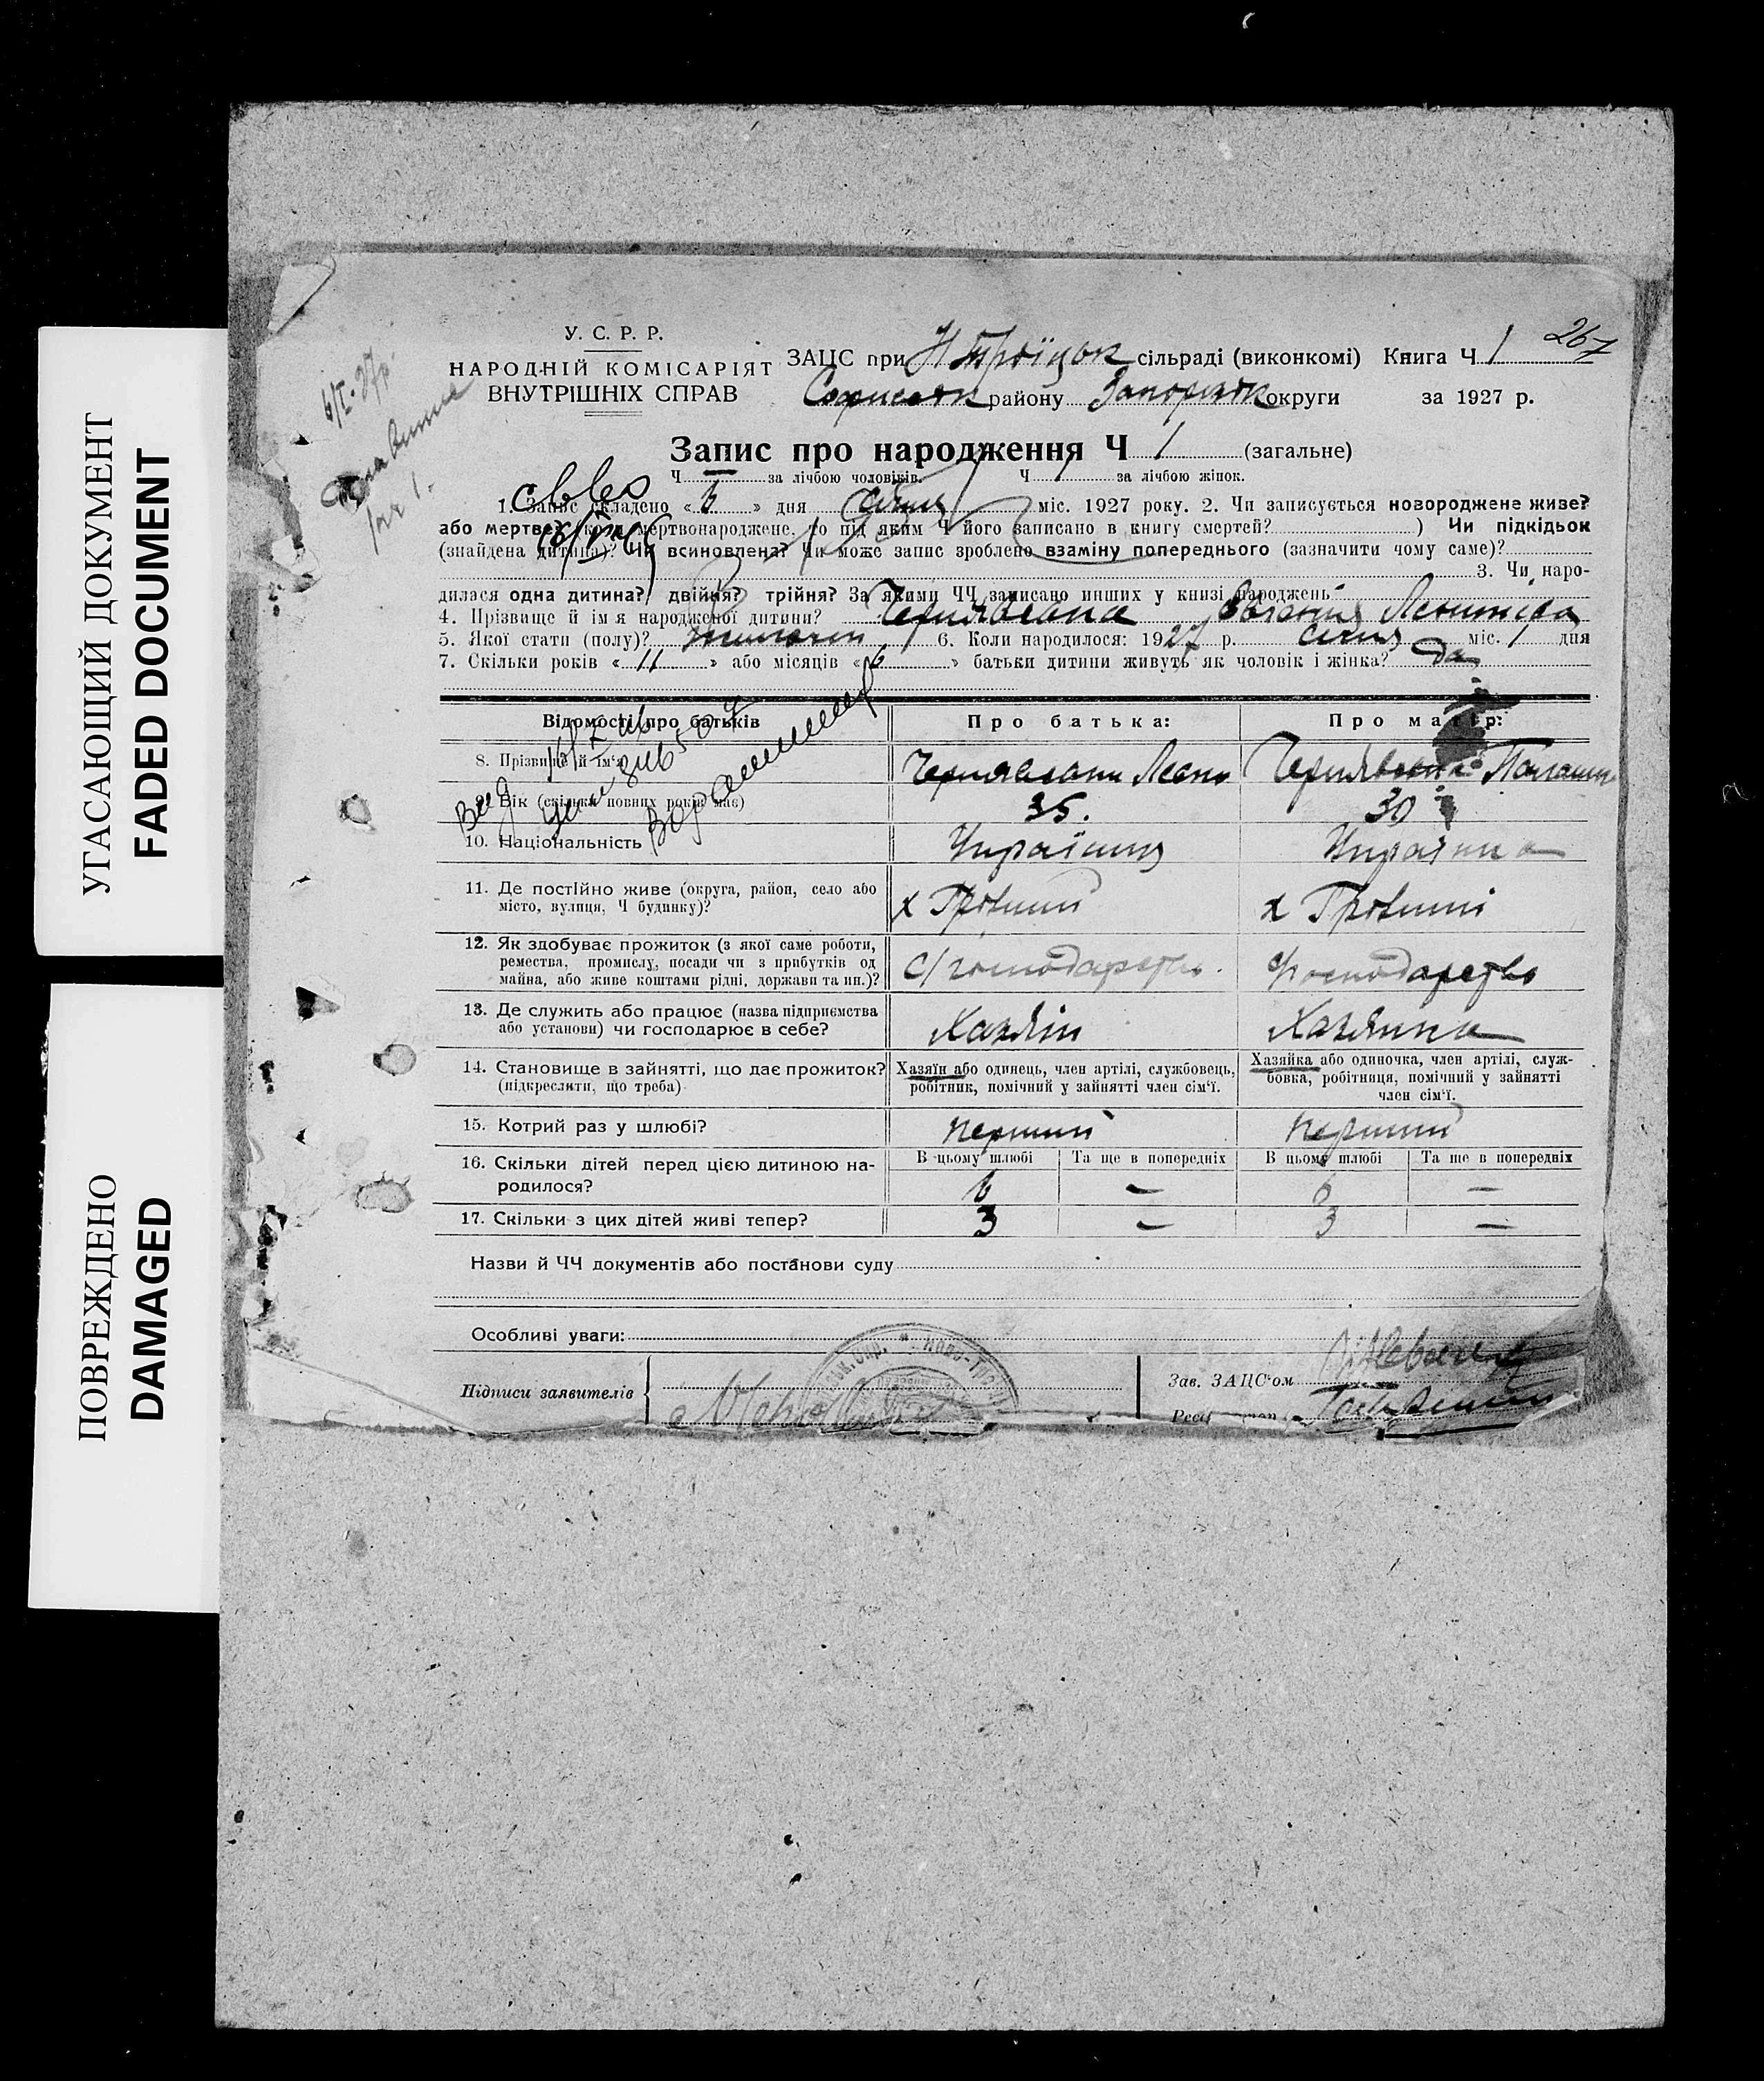 УГАСАЮЩИЙ ДОКУМЕНТ
FADED DOCUMENT
ПОВРЕЖДЕНО
DAMAGED
267
У. С. Р. Р.
НАРОДНІЙ КОМІСАРІЯТ
ВНУТРІШНІХ СПРАВ
ЗАЦС при Н Троїцьк сільраді (виконкомі) Книга Ч 1
району Запорізьк округи за 1927 р.
Запис про народження Ч 1 (загальне)
Ч — за лічбою чоловіків. Ч 1 за лічбою жінок.
1. Запис складено « 6 » дня січня міс. 1927 року. 2. Чи записується новороджене живе?
або мертве? (коли мертвонароджене, то під яким Ч його записано в книгу смертей? ) Чи підкідьок
(знайдена дитина)? Чи всиновлена? Чи може запис зроблено взаміну попереднього (зазначити чому саме)?
3. Чи наро-
дилася одна дитина? двійня? трійня? За якими ЧЧ записано инших у книзі народжень
4. Прізвище й ім'я народженої дитини? Чернявська Євгенія
5. Якої статі (полу)? 6. Коли народилося: 1927 р. січня міс. 1 дня
7. Скільки років « 11 » або місяців « 6 » батьки дитини живуть як чоловік і жінка? да
Відомості про батьків
Про батька:
Про матір:
8. Прізвище й ім'я
Чернявський
Чернявська
9. Вік (скільки повних років має)
35.
30
10. Національність
Українец
Українка
11. Де постійно живе (округа, район, село або
місто, вулиця, Ч будинку)?
х
х
12. Як здобуває прожиток (з якої саме роботи,
ремества, промислу, посади чи з прибутків од
майна, або живе коштами рідні, держави та ин.)?
С/господарство
С/господарство
13. Де служить або працює (назва підприємства
або установи) чи господарює в себе?
Хазяїн
Хазяйка
14. Становище в зайнятті, що дає прожиток?
(підкреслити, що треба)
Хазяїн або одинець, член артілі, службовець,
робітник, помічний у зайнятті член сім'ї.
Хазяйка або одиночка, член артілі, служ-
бовка, робітниця, помічний у зайнятті
член сім'ї.
15. Котрий раз у шлюбі?
перший
перший
16. Скільки дітей перед цією дитиною на-
родилося?
В цьому шлюбі
Та ще в попередніх
В цьому шлюбі
Та ще в попередніх
6
—
6
—
17. Скільки з цих дітей живі тепер?
3
—
3
—
Назви й ЧЧ документів або постанови суду
Особливі уваги:
Підписи заявителів
Зав. ЗАЦС'ом